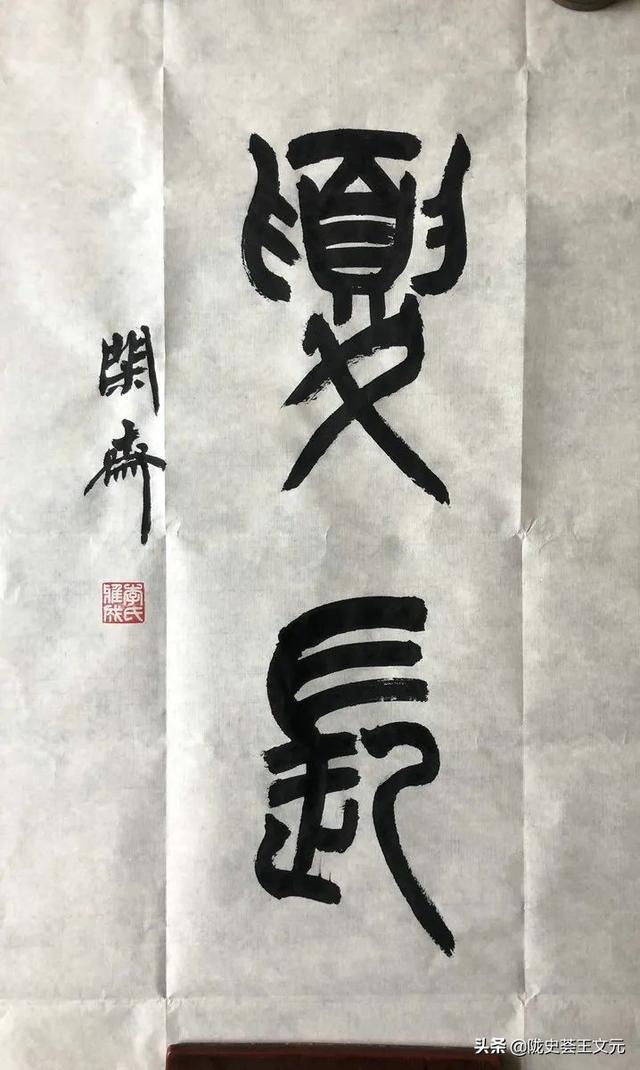 夏長
閑齋
头条 @陇史荟王文元